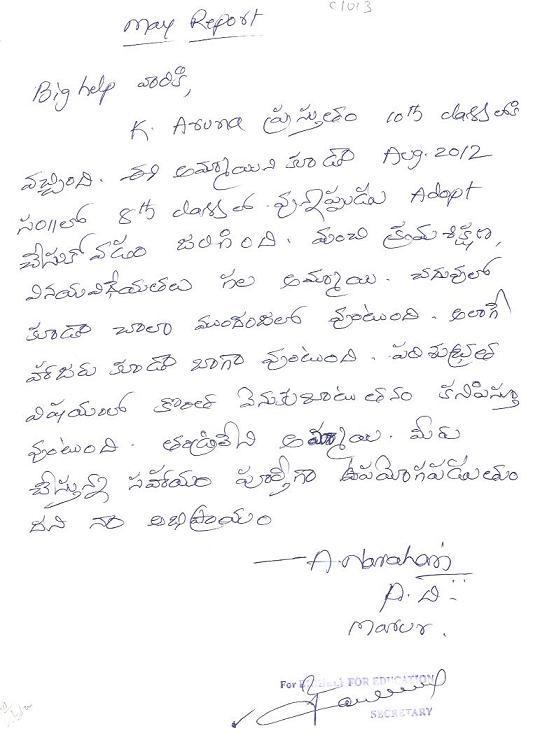 C1013
May Report
Big help వారికి,
K. Aruna ప్రస్తుతం 10th classలోకి
వచ్చింది. ఈ అమ్మాయిని కూడా Aug. 2012
సం॥లో 8th classలో వున్నప్పుడు Adopt
చేసుకోవడం జరిగింది. మంచి క్రమశిక్షణ,
వినయవిధేయతలు గల అమ్మాయి. చదువులో
కూడా చాలా ముందంజలో వుంటుంది. అలాగే
హాజరు కూడా బాగా వుంటుంది. పరిశుభ్రత
విషయంలో కొంత వెనుకబాటుతనం కనిపిస్తూ
వుంటుంది. తండ్రిలేని అమ్మాయి. మీరు
చేస్తున్న సహాయం పూర్తిగా ఉపయోగపడుతుం
దని నా అభిప్రాయం
A. Narahari
Marur.
For FOR EDUCATION
SECRETARY